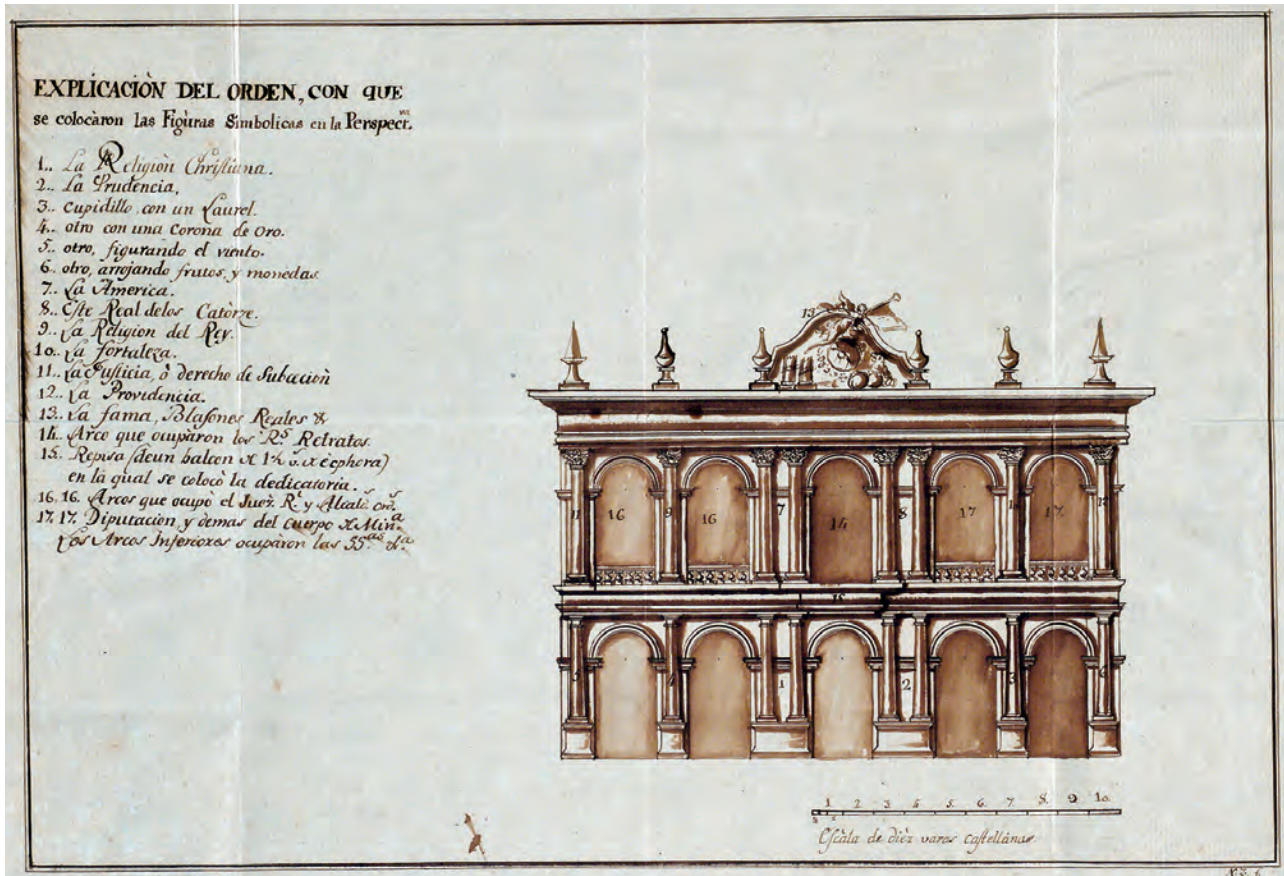 EXPLÍCACIÒN DEL ORDEN, CON QUE
se colocàron las Figùras Simbolicas en la Perspect.va
1.. La Religiòn Christiana.
2.. La Prudencia,
3.. Cupidillo, con un Laurel.
4.. otro con una Corona de Oro.
5.. otro, figurando el viento.
6.. otro, arrojando frutos, y monedas.
7.. La America.
8.. Este Real delos Catòrze.
9.. La Religion del Rey.
10.. La fortaleza.
11.. La Justicia, ò derecho de Subceciòn
12.. La Providencia.
13.. La fama, Blasones Reales &
14.. Arco que ocupàron los R.s Retratos.
15.. Repisa (deun balcon de 1½ v. de ecphora)
en la qual se colocò la dedicatoria.
16. 16. Arcos que ocupò el Juez R.l y Alcald.s Ord.s
17. 17. Diputacion, y demas del Cuerpo de Min.a
Los Arcos Inferiores ocupàron las SS.as &.a
13
11 16 9 16 7 14 8 17 10 17 12
15
5 4 1 2 3 6
1 2 3 4 5. 6. 7. 8. 9 10.
Escàla de dièz varas Castellànas.